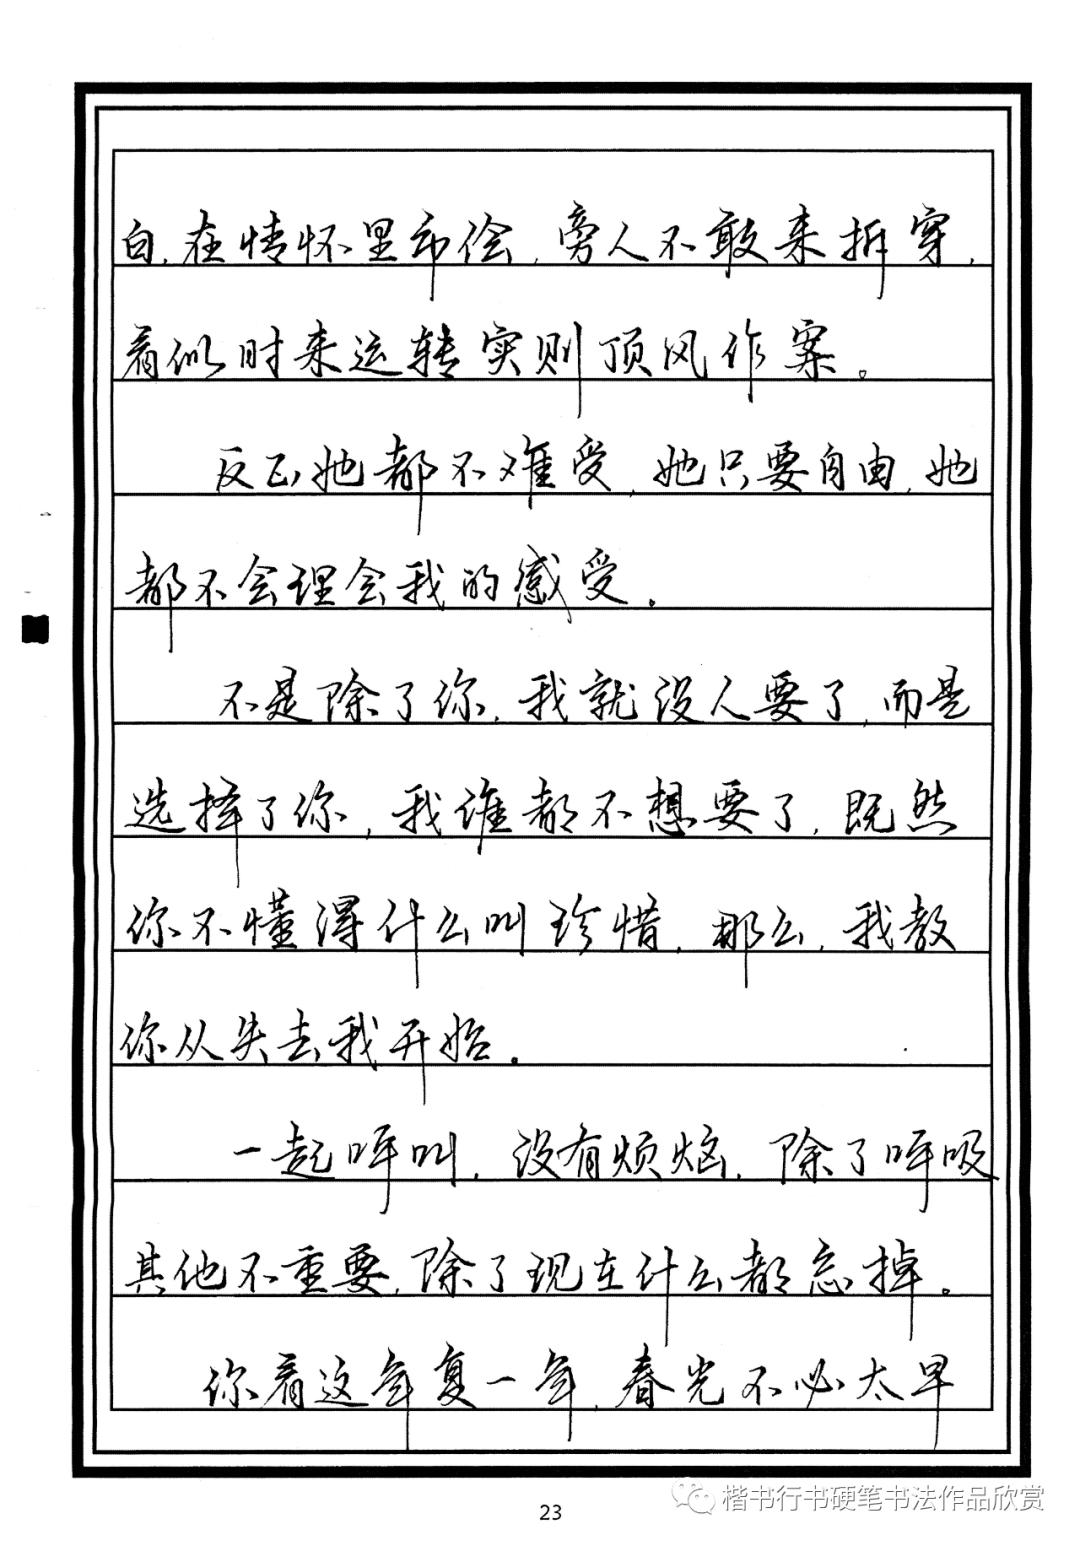 白,在情怀里市侩,旁人不敢来拆穿,
看似时来运转实则顶风作案。
反正她都不难受,她只要自由,她
都不会理会我的感受.
不是除了你,我就没人要了,而是
选择了你,我谁都不想要了,既然
你不懂得什么叫珍惜,那么,我教
你从失去我开始.
一起呼叫,没有烦恼,除了呼吸
其他不重要,除了现在什么都忘掉。
你看这年复一年,春光不必太早
23
楷书行书硬笔书法作品欣赏